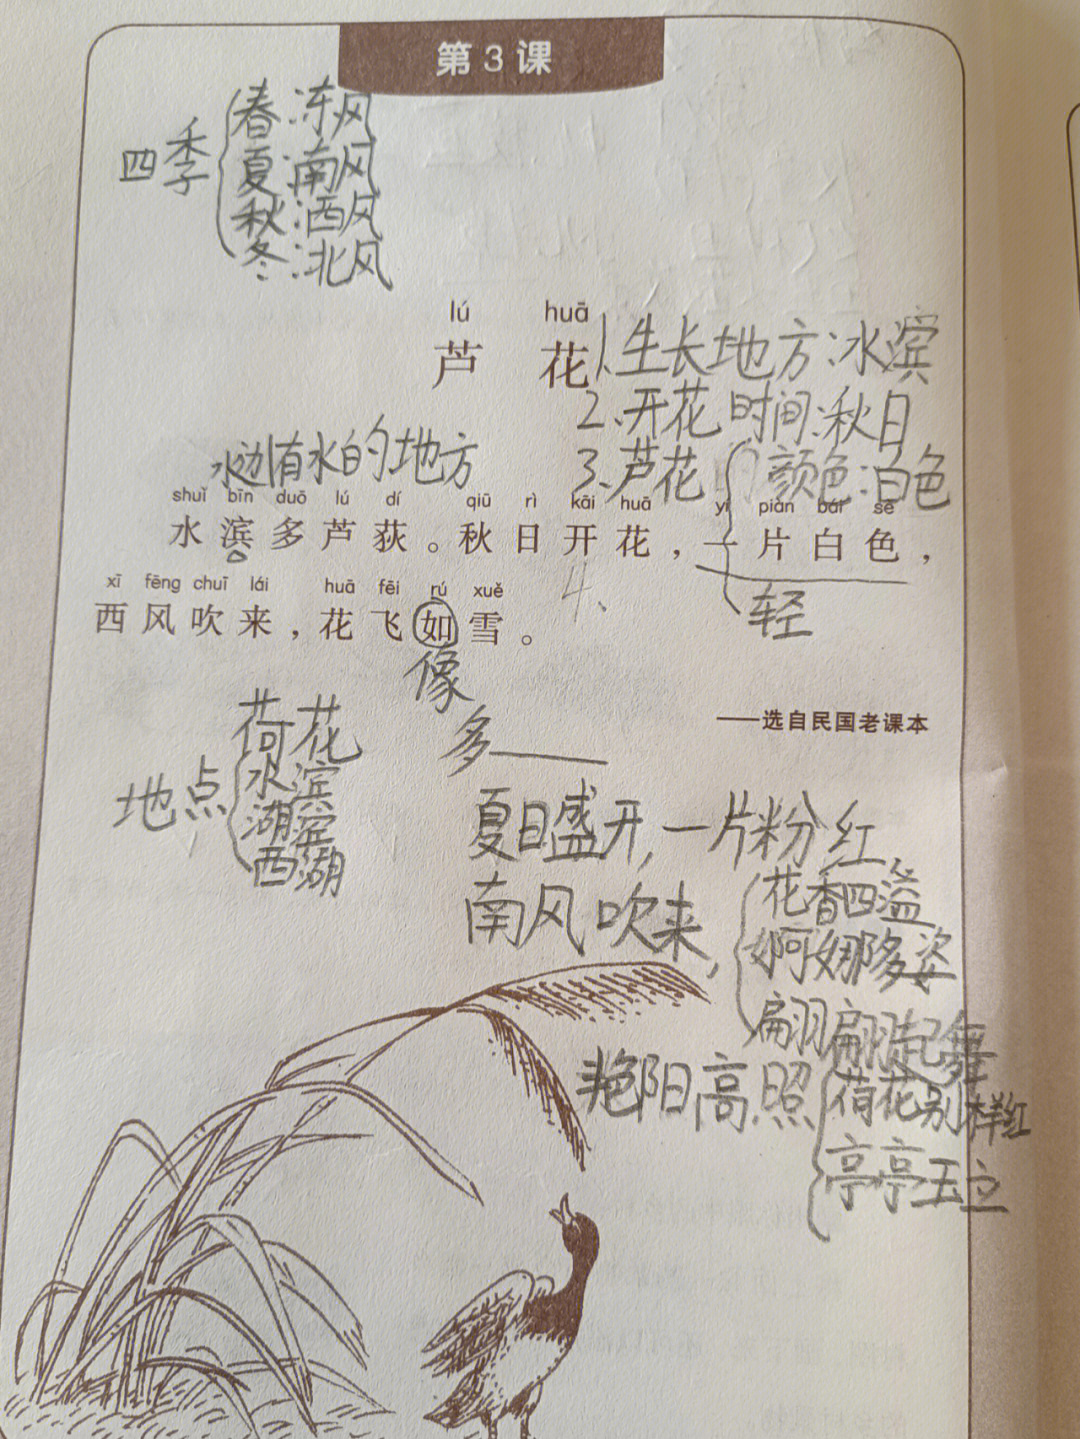 第3课
春:冻风
四季
夏:南风
秋:西风
冬:北风
lú huā
芦 花
1、生长地方:水滨
2、开花时间:秋日
水边有水的地方
3、芦花的 颜色:白色
shuǐ bīn duō lú dí qiū rì kāi huā yí piàn bái sè
水滨多芦荻。秋日开花,一片白色,
4、
轻
xī fēng chuī lái huā fēi rú xuě
西风吹来,花飞如雪。
像
——选自民国老课本
荷花
多
地点
水滨
湖滨
西湖
夏日盛开,一片粉红
南风吹来,
花香四溢
婀娜多姿
翩翩起舞
艳阳高照
荷花别样红
亭亭玉立